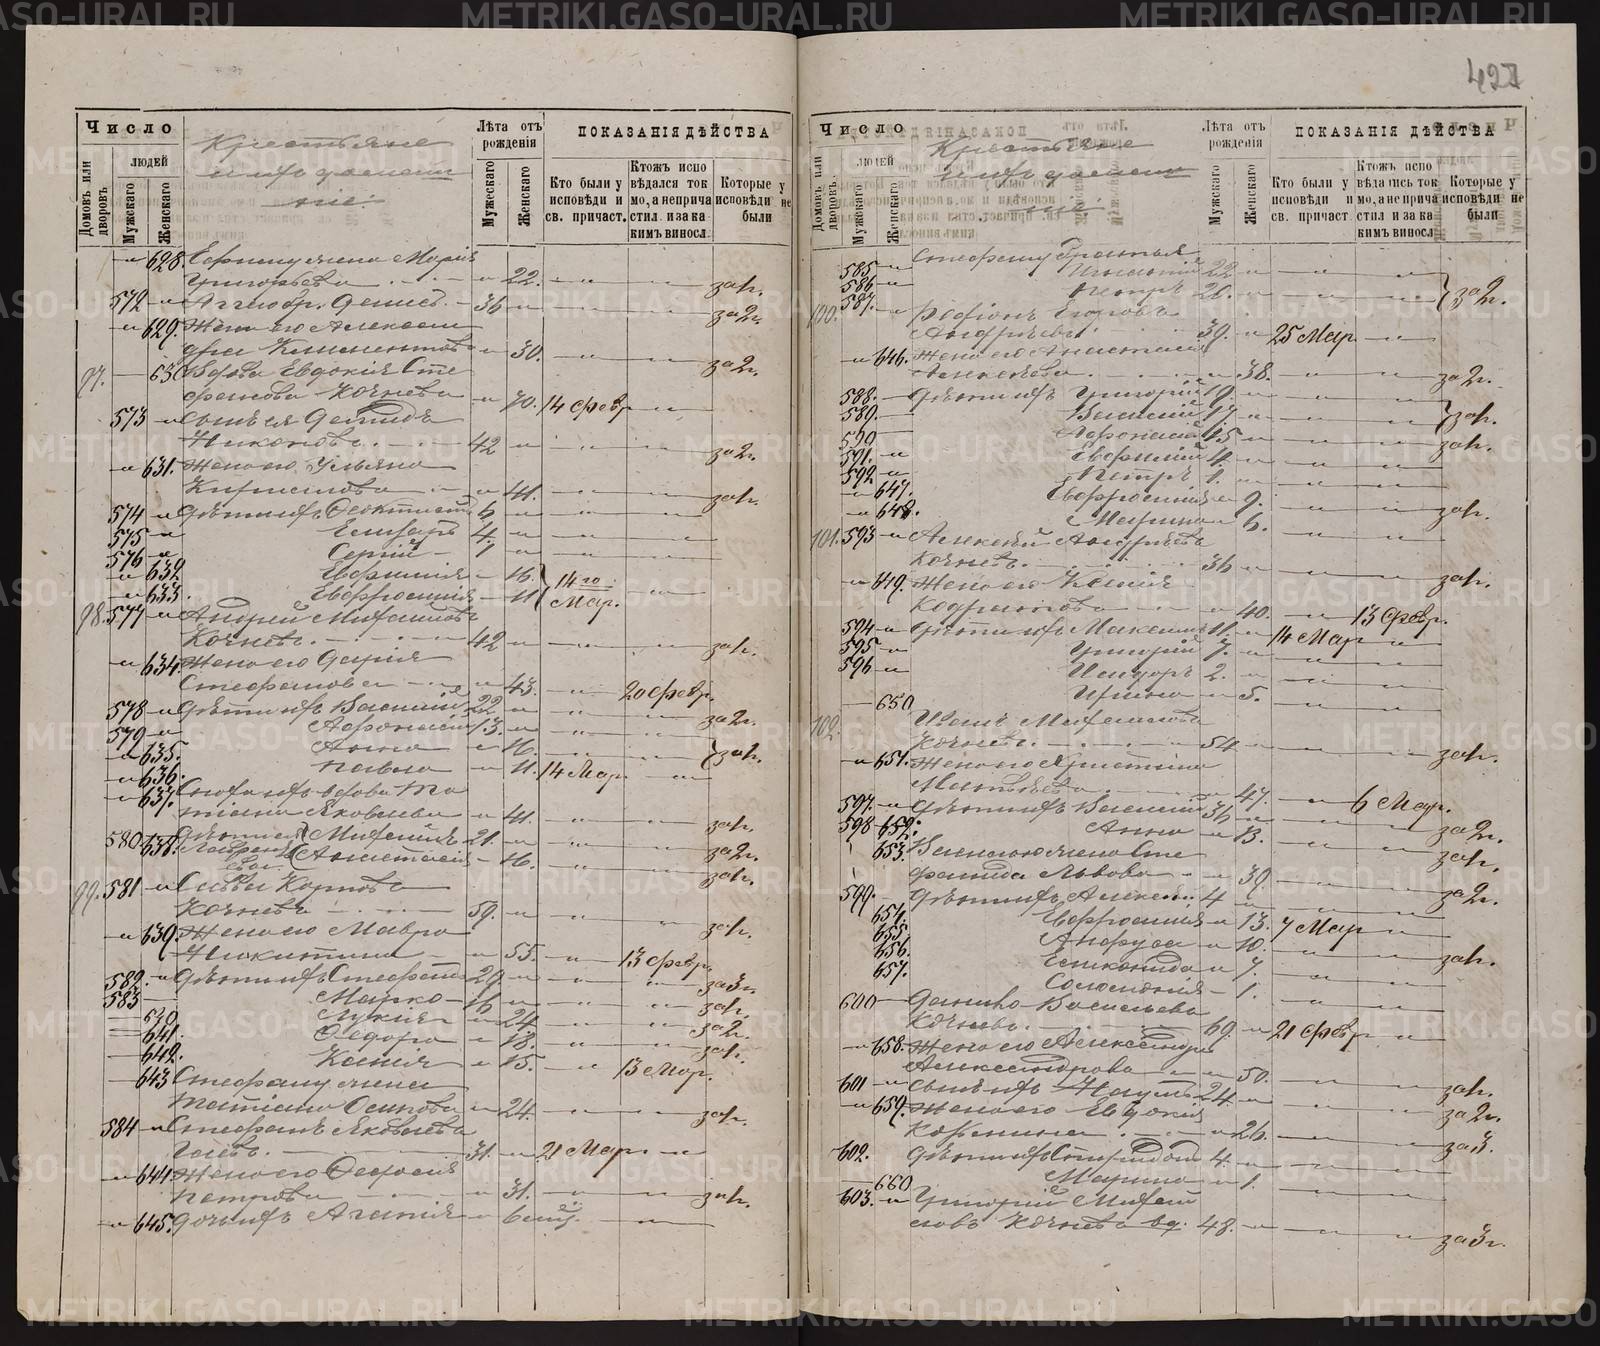 METRIKI.GASO-URAL.RU
427
Число
Домовъ или дворовъ.
людей
Мужскаго
Женскаго
Крестьяне
и ихъ домашн
ніе
Лѣта отъ рожденія
Мужскаго
Женскаго
ПОКАЗАНІЯ ДѢЙСТВА
Кто были у исповѣди и св. причаст.
Ктожъ исповѣдался токмо, а не причастил. и за какимъ винослов.
Которые у исповѣди не были
628 Григорьева 22. за 1г.
572 Денисъ 36 за 2г.
629. Жена его Александра Климентова 30. за 2г.
97. 630 Вдова Евдокія Стефанова Кочнева 70. 14 февр
573 Сынъ ея Никоновъ 42 за 2г.
631. Жена его Ульяна Кирилова 41. за 1г.
574 Дѣти ихъ Феоктистъ 6
575 Елизаръ 4.
576 Сергій 1
632 Евфимія 16.
633. Евфросинія 11 14го Мар.
98. 577 Андрей Михайловъ Кочневъ. 42 за 1г.
634. Жена его Дарія Стефанова 43. 20 февр.
578 Дѣти ихъ Василій 22 за 2г.
579 Афонасій 13.
635. Анна 16. за 1г.
636. Павла 11. 14 Мар
637. Сноха ихъ вдова Татіана Яковлева 41. за 1г.
580 Михаилъ 21. за 2г.
638. Анастасія 16. за 1г.
99. 581 Савва Карповъ Кочневъ 59. за 1г.
639. Жена его Мавра Никитина 55. 13 февр.
582. Дѣти ихъ Стефанъ 29. за 3г.
583 Марко 16 за 1г.
630 Лукія 24. за 2г.
641. Ѳедора 18. за 1г.
642. Ксенія 15. 13 Мар.
643 Стефану жена Татіана Осипова 24. за 1г.
584 Стефанъ Яковлевъ 31. 21 Мар.
644 Жена его Петрова 31. за 1г.
645. Дочь ихъ Агапія 6
Число
Домовъ или дворовъ.
людей
Мужскаго
Женскаго
Крестьяне
и ихъ домашн
ніе
Лѣта отъ рожденія
Мужскаго
Женскаго
ПОКАЗАНІЯ ДѢЙСТВА
Кто были у исповѣди и св. причаст.
Ктожъ исповѣдались токмо, а не причастил. и за какимъ винослов.
Которые у исповѣди не были
585 Стефану братья
586 Игнатій 22
587. Петръ 26. за 2г.
100. Родіонъ Егоровъ 39. 25 Мар
646. Жена его Анастасія Алексѣева 38. за 2г.
588 Дѣти ихъ Григорій 19.
589. Василій 17. за 1г.
590 Афонасій 15 за 1г.
591. Евфимій 4.
592 Петръ 1.
647. Евфросинія 9.
648. Марина 6. за 1г.
101. 593 Алексѣй Андреевъ Кочневъ. 36 за 1г.
649. Жена его Ксенія Кодратова 40. 13 февр.
594 Дѣти ихъ Максимъ 11. 14 Мар
595 Григорій 7.
596 Исидоръ 2.
650 Ирина 5.
102. Иванъ Михайловъ Кочневъ. 54 за 1г.
651. Жена его Христина Матвѣева 47. 6 Мар.
597. Дѣти ихъ Василій 36 за 2г.
598 652. Анна 13. за 1г.
653. Василію жена Стефанида Львова 39. за 2г.
599. Дѣти ихъ Алексѣй 4
654. Евфросинія 13. 7 Мар
655 Анфуса 10. за 1г.
656. 7.
657. Соломонія 1.
600 Данило Васильевъ Кочневъ. 69. 21 февр
658. Жена его Александра Александрова 50. за 1г.
601 Сынъ ихъ Наумъ 24 за 2г.
659. Жена его Евдокія 26. за 3.
602. Дѣти ихъ Спиридонъ 4.
660 Марина 1.
603. Григорій Михайловъ Кочневъ вд. 48. за 3г.